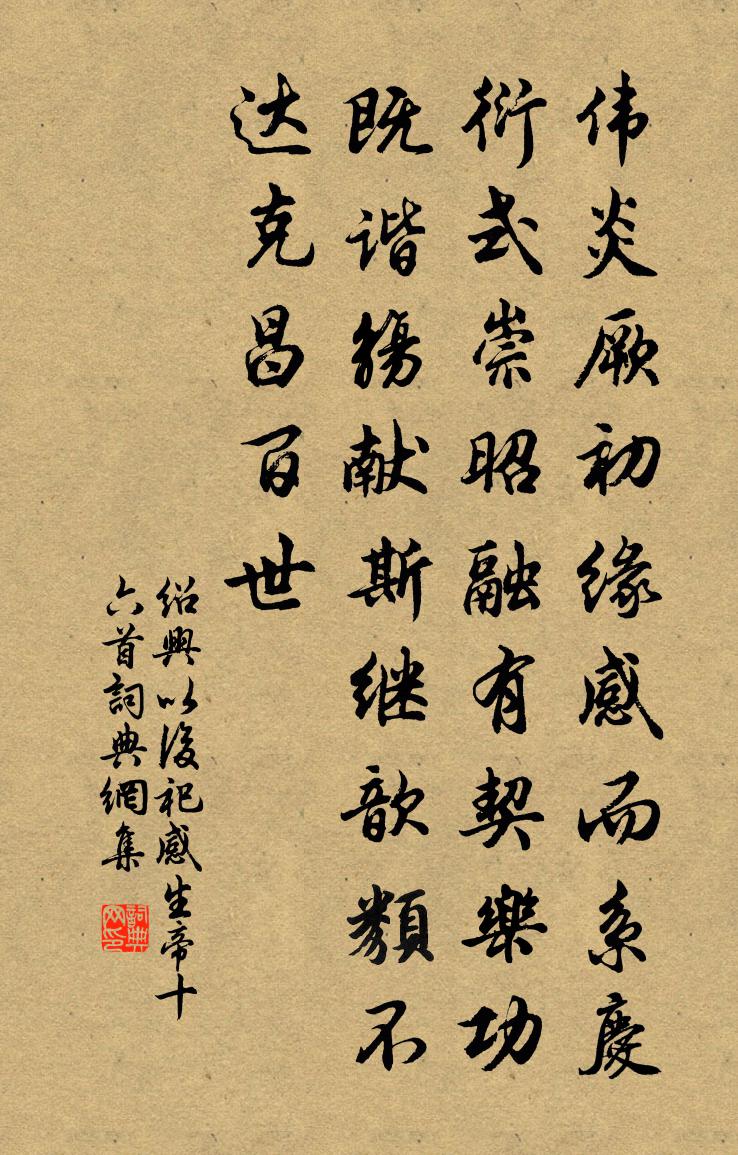 伟炎厥初缘感而系慶
衍式崇昭融有契樂功
既谐觴献斯继歆類不
达克昌百世
绍興以後祀感生帝十
六首詞典網集
詞典
网印